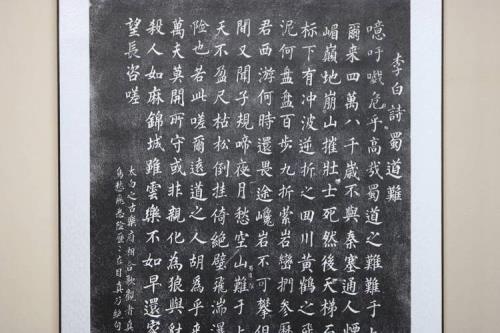 李白詩蜀道難
噫吁嚱危乎高哉蜀道之難難于
爾来四萬八千歲不與秦塞通人煙
嵋巔地崩山摧壯士死然後天梯石
标下有冲波逆折之四川黃鶴之飛
泥何盘盘百步九折縈岩巒捫参歷
君西游何時還畏途巉岩不可攀但
聞又聞子規啼夜月愁空山難于上
天不盈尺枯松倒挂倚絕壁飛湍瀑
险也若此嗟爾遠道之人胡為乎来
萬夫莫開所守或非親化為狼與豺
殺人如麻錦城雖雲樂不如早還家
望長咨嗟
太白之古樂府相合歌觀者真
在目真乃絕句